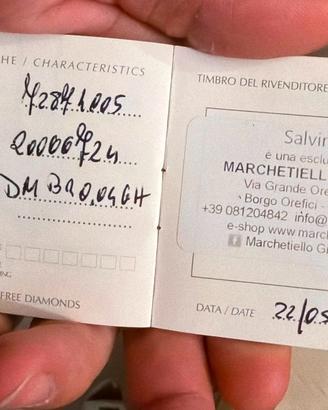 HE / CHARACTERISTICS
7287.1.005
20006724
DM BR0,04GH
NG
FREE DIAMONDS
TIMBRO DEL RIVENDITORE
Salvin
è una esclu
MARCHETIELL
Via Grande Ore
Borgo Orefici -
+39 081204842 info@
e-shop www.march
Marchetiello G
DATA / DATE 22/05